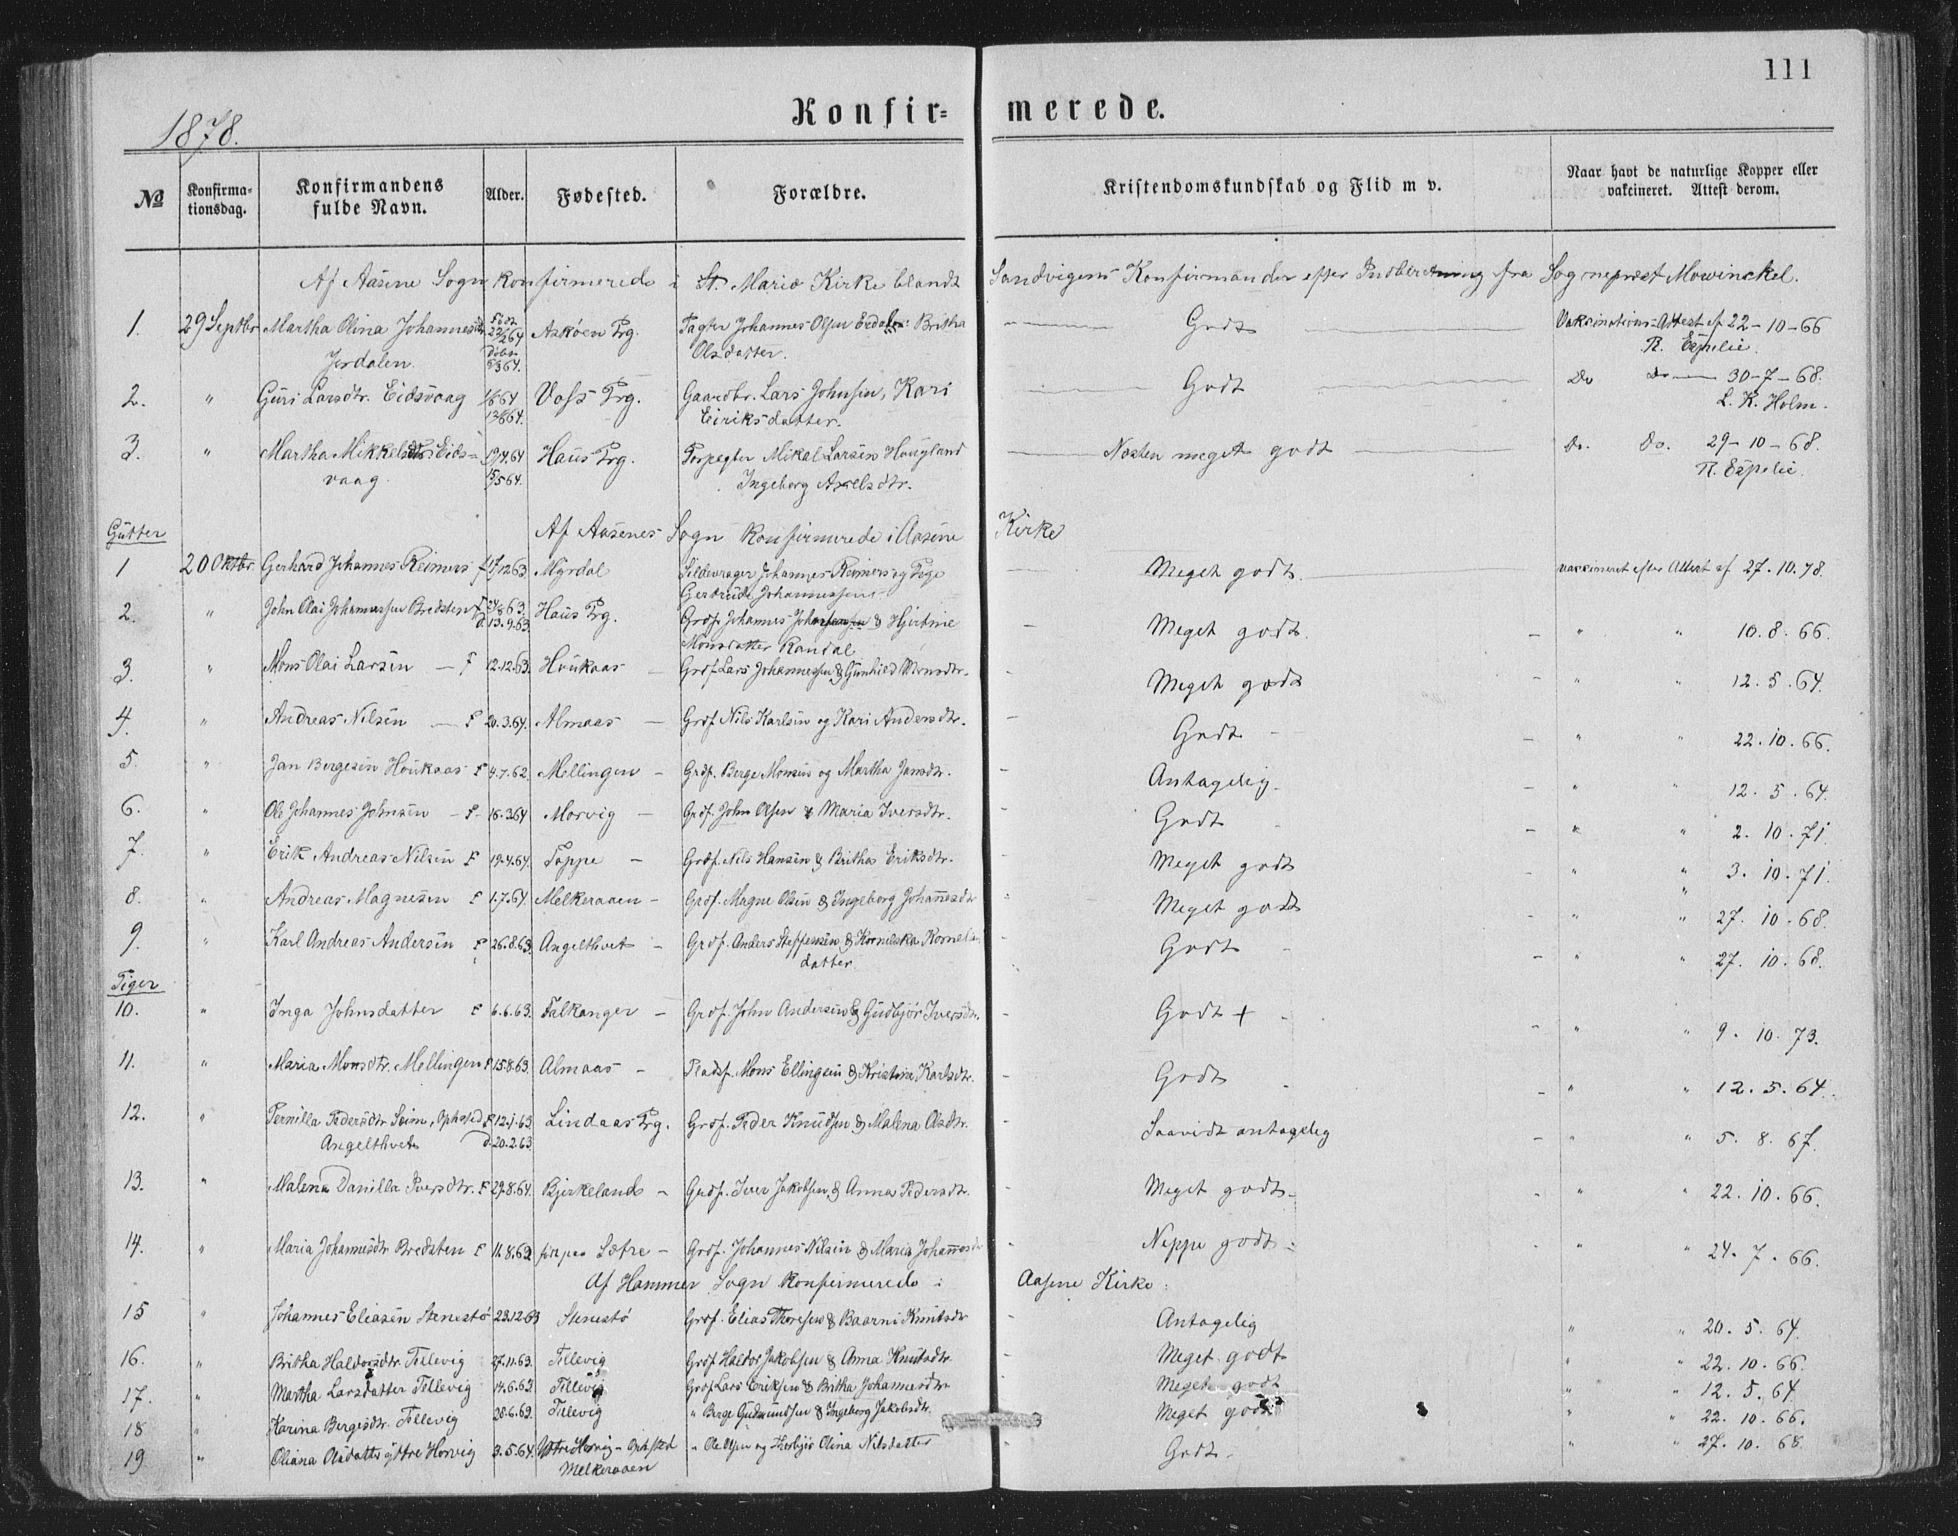 111
1878.
Konfir= merede.
№ Konfirma-tionsdag. Konfirmandens fulde Navn. Alder. Fødested. Forældre. Kristendomskundskab og Flid m v. Naar havt de naturlige Kopper eller vakcineret. Attest derom.
Af Aasene Sogn konfirmerede i St. Mariæ Kirke blandt Sandvigens Konfirmander efter Indberetning fra Sognepræst Mowinckel.
1. 29 Septbr Martha Olina Johannesdtr Født 22/2 64 Askøen Prg. Pagter Johannes Olsen Britha Godt Vakcinations-Attest af 22-10-66
Jordalen. Døbt 64. Olsdatter. R. Espelie.
2. " Guri Larsdtr. Eidsvaag 64 Voss Prg. Gaardbr. Lars Johnsen, Kari Godt Do Do 30-7-68.
64. Eiriksdatter. L. K. Holm.
3. " Martha Mikkelsdtr Eids= 19/4.64 Haus Prg. Forpagter Mikal Larsen Hougland Næsten meget godt Do. Do. 29-10-68.
vaag 15/5 64. Ingeborg Axelsdtr. R. Espelie.
Gutter Af Aasenes Sogn konfirmerede i Aasene Kirke
1 20 Oktbr Gerhard Johannes Reimers f 17/12 63. Myrdal Sildevrager Johannes Reimers og Pige Meget godt. vakcineret efter Attest af 27.10.78.
Gertrude Johannessen
2. " John Olai Johannessen Bredsten f 24/8 63. Haus Prg. Grdf. Johannes & Hjertine Meget godt. " " 10.8.66.
d. 13.9.63. Monsdatter Randal
3. " Mons Olai Larsen – F 12.12.63. Houkaas – Grdf Lars Johannessen & Gunhild Monsdtr. Meget godt " " 12.5.64.
4. " Andreas Nilsen – F 20.3.64. Almaas – Grdf Nils Karlsen og Kari Andersdtr. Godt – " 22.10.66.
5. " Jan Bergesen Houkaas F 4.7.62. Mellingen – Grdf. Berge Monsen og Martha Jansdtr. Antagelig. " " 12.5.64.
6. " Ole Johannes Johnsen – F 16.3.64 Morvig – Grdf. John Olsen & Maria Iversdtr. Godt " " 2.10.71.
7. " Erik Andreas Nilsen F 19.4.64. Toppe – Grdf. Nils Hansen & Brithe Eriksdtr. Meget godt " " 3.10.71.
8. " Andreas Magnesen F 1.7.64. Melkeraaen – Grdf. Magne Olsen & Ingeborg Johannesdtr Meget godt " " 27.10.68.
9. " Karl Andreas Andersen F 26.8.63. Angelthvet – Grdf. Anders Steffensen & Korneliska Kornels- Godt – " " 27.10.68.
datter.
Piger
10. " Inga Johnsdatter F 6.6.63. Falkanger – Grdf. John Andersen & Gudbjør Iversdtr. Godt + " " 9.10.73.
11. " Maria Monsdtr. Mellingen F 15.8.63. Almaas – Pladsf. Mons Ellingsen & Kristina Karlsdtr. Godt " " 12.5.64.
12. " Pernilla Pedersdtr Seim, Ophsted F 12.1.63. Lindaas Prg. Grdf. Peder Knudsen & Malena Olsdtr. Saavidt antagelig " " 5.8.67.
Angelthvet d. 20.2.63
13. " Malena Danilla Iversdtr. F 29.8.64. Bjerkelands – Grdf. Iver Jakobsen & Anna Pedersdtr. Meget godt – " " 22.10.66.
14. " Maria Johannesdtr Bredsten F 11.8.63. Sætre – Grdf. Johannes Nilsen & Maria Johannesdtr Neppe godt " " 24.7.66.
Af Hammer Sogn konfirmerede i Aasene Kirke:
15 " Johannes Eliasen Stenestø 28.12.63 Stenestø Grdf. Elias Thoresen & Baarni Knutsdtr Antagelig " " 20.5.64.
16. " Britha Haldorsdtr. Tellevig 27.11.63. Tellevig Grdf Haldor Jakobsen & Anna Knutsdtr. Meget godt " " 22.10.66.
17. " Martha Larsdatter Tellevig 14.6.63. Tellevig Grdf Lars Eriksen & Britha Johannesdtr. Meget godt " " 12.5.64.
18 " Karina Bergesdtr. Tellevig 28.6.63. Tellevig " Berge Gudmundsen & Ingeborg Jakobsdtr. Meget godt " " 22.10.66.
19 " Oliana Olsdatter ytre Horvig 3.5.64. Ytre Horvig – Ophsted " Ole Olsen og Herbjør Olina Nilsdatter Godt – " " 27.10.68
Melkeraaen